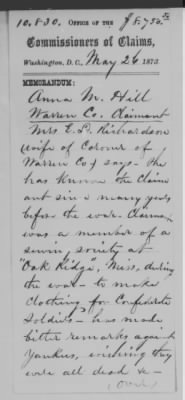 10.830. OFFICE OF THE $8,750.
Commissioners of Claims,
Washington, D.C., May 26 1873
MEMORANDUM:
Anna M. Hill
Warren Co. Claimant
Mrs E. L. Richardson
(wife of Coroner of
Warren Co) says - She
has known the Claim
ant since many years
before the war. Claimant
was a member of a
sewing society at
"Oak Ridge", Miss, during
the war - to make
Clothing for Confederate
Soldiers - has made
bitter remarks against
Yankees, wishing they
were all dead &c -
(over)